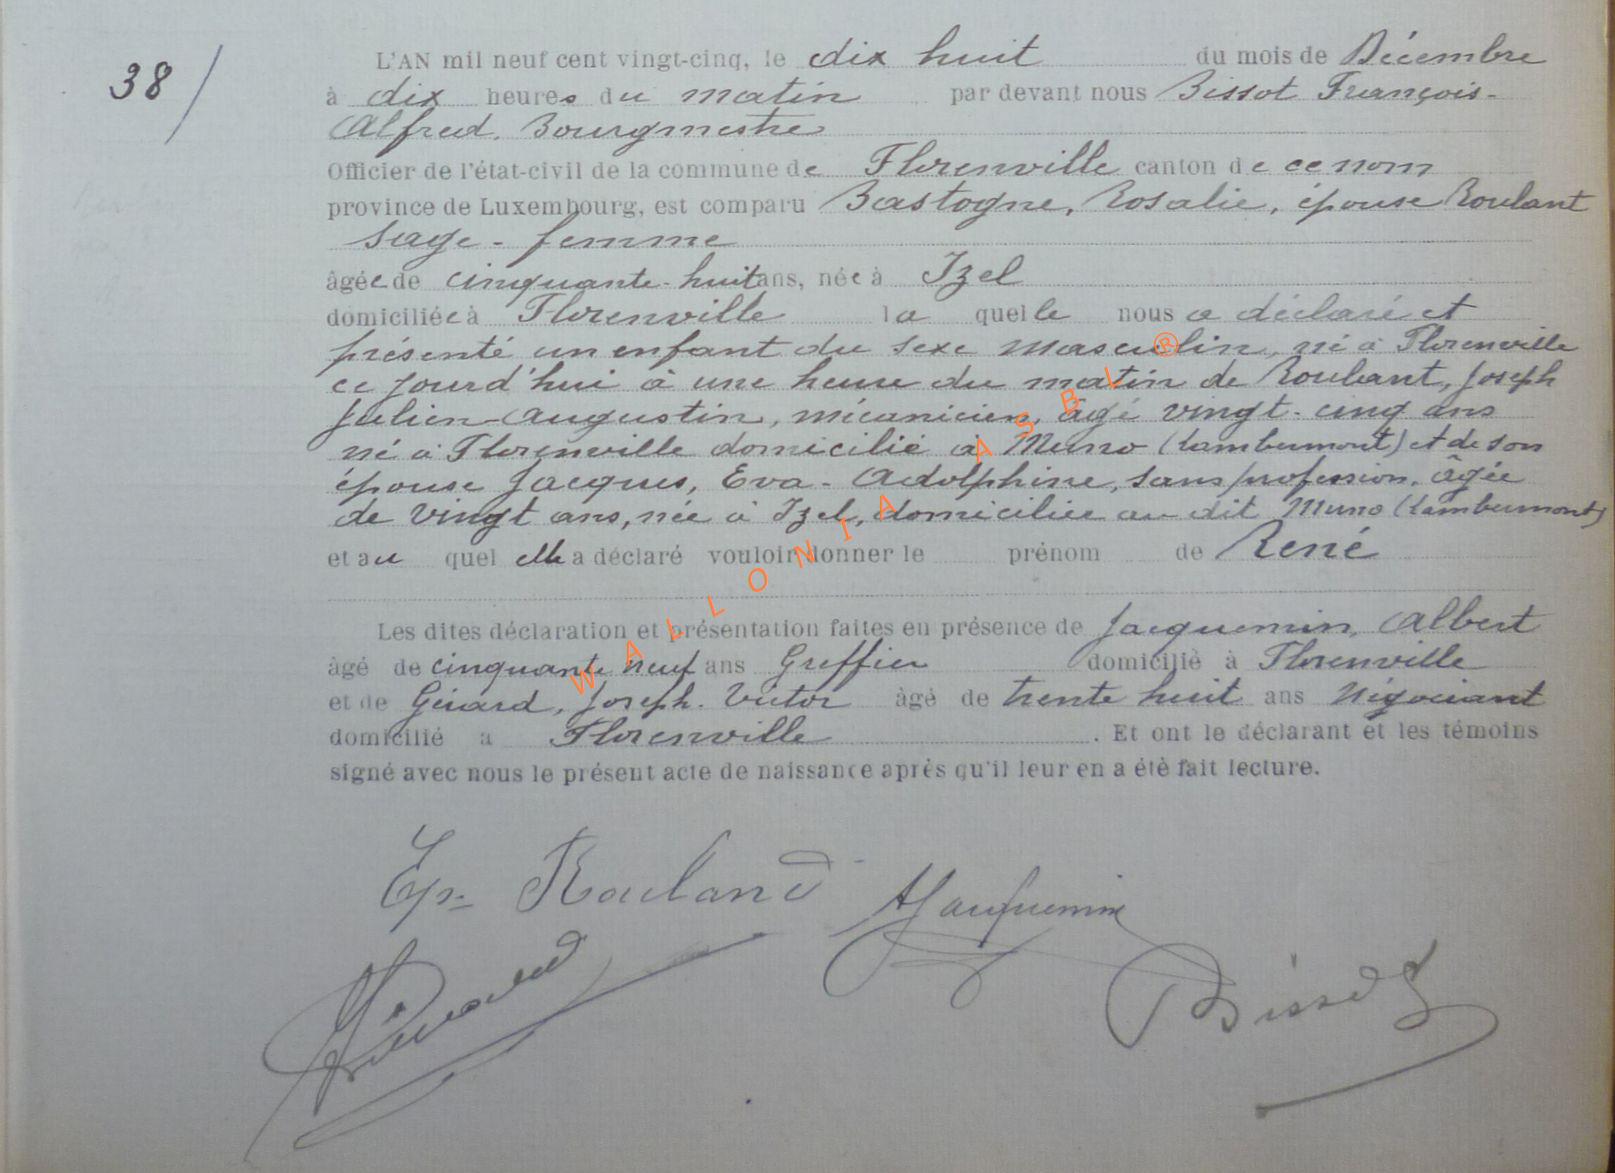 38/
L'AN mil neuf cent vingt-cinq, le dix huit du mois de Décembre
à dix heures du matin par devant nous Bissot François-
Alfred. Bourgmestre
Officier de l'état-civil de la commune de Florenville canton de ce nom
province de Luxembourg, est comparu Bastogne, Rosalie, épouse Roulant
sage-femme
âgée de cinquante-huit ans, née à Izel
domiciliée à Florenville la quelle nous a déclaré et
présenté un enfant du sexe masculin, né à Florenville
ce jourd'hui à une heure du matin de Roulant, Joseph
Julien-Augustin, mécanicien, âgé vingt-cinq ans
né à Florenville domicilié à Muno (Lambermont) et de son
épouse Jacques, Eva-Adolphine, sans profession, âgée
de vingt ans, née à Izel, domiciliée au dit Muno (Lambermont)
et au quel elle a déclaré vouloir donner le prénom de René
Les dites déclaration et présentation faites en présence de Jacquemin, Albert
âgé de cinquante neuf ans Greffier domicilié à Florenville
et de Gérard, Joseph. Victor âgé de trente huit ans Négociant
domicilié a Florenville. Et ont le déclarant et les témoins
signé avec nous le présent acte de naissance après qu'il leur en a été fait lecture.
Ep. Rouland AJacquemin
JGérard Bissot
WALLONIA ASBL ®